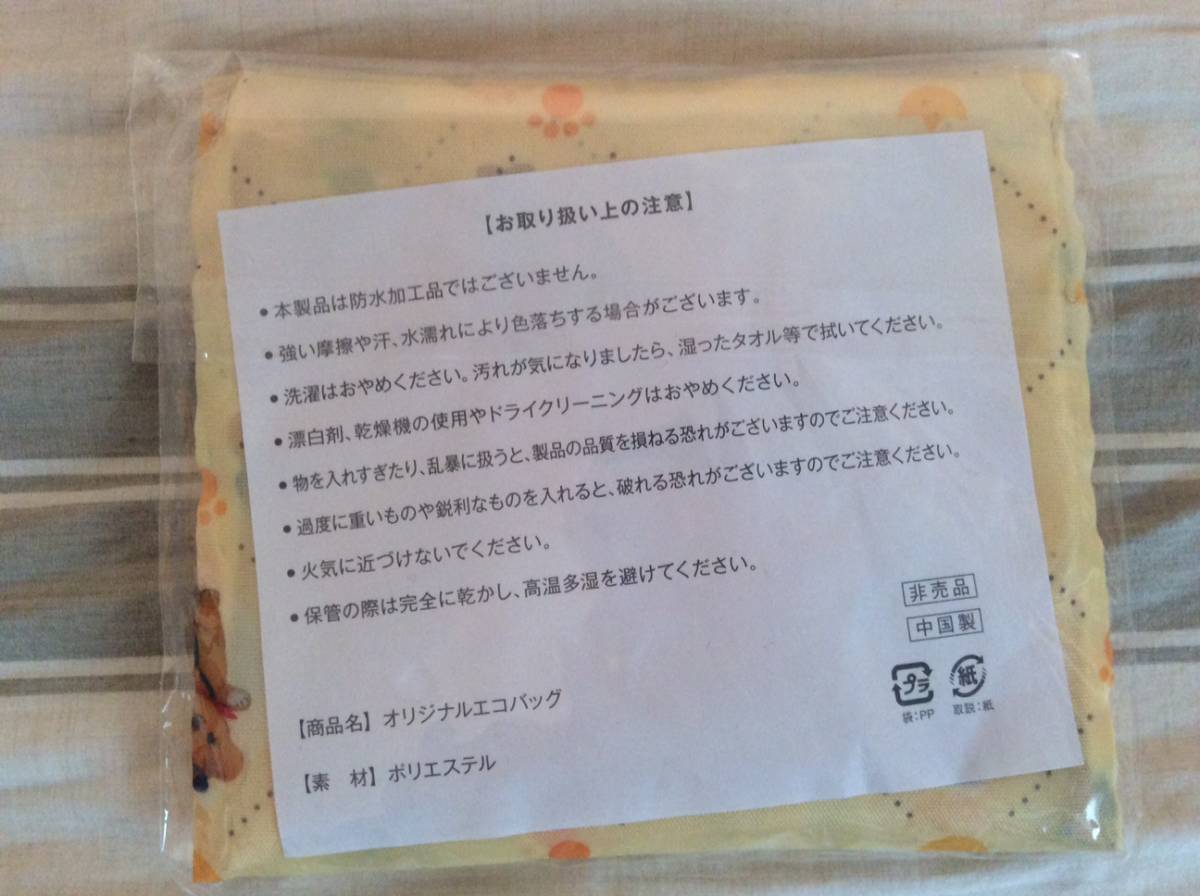 【お取り扱い上の注意】
●本製品は防水加工品ではございません。
●強い摩擦や汗、水濡れにより色落ちする場合がございます。
●洗濯はおやめください。汚れが気になりましたら、湿ったタオル等で拭いてください。
●漂白剤、乾燥機の使用やドライクリーニングはおやめください。
●物を入れすぎたり、乱暴に扱うと、製品の品質を損ねる恐れがございますのでご注意ください。
●過度に重いものや鋭利なものを入れると、破れる恐れがございますのでご注意ください。
●火気に近づけないでください。
●保管の際は完全に乾かし、高温多湿を避けてください。
非売品
中国製
プラ 紙
袋:PP 取説:紙
【商品名】オリジナルエコバッグ
【素 材】ポリエステル